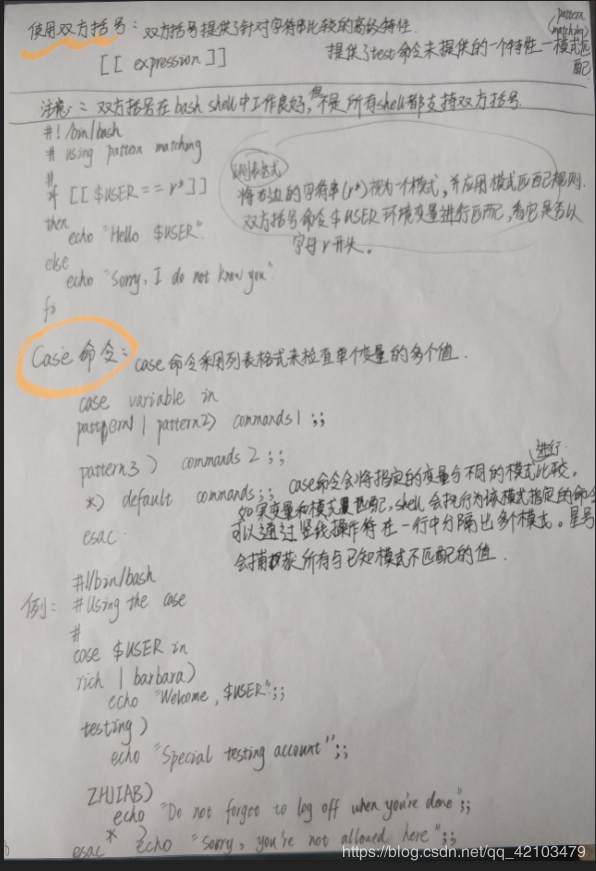 使用双方括号：双方括号提供了针对字符串比较的高级特性.
(pattern matching)
[[ expression ]] 提供了test命令未提供的一个特性一模式匹配.
注意：: 双方括号在bash shell中工作良好，然不是所有shell都支持双方括号.
#!/bin/bash
# using pattern matching
#
if [[ $USER == r* ]]
then
echo "Hello $USER"
else
echo "Sorry, I do not know you"
fi
正则表达式
将右边的字符串(r*)视为一个模式,并应用模式匹配规则.
双方括号命令$USER环境变量进行匹配,看它是否以
字母r开头。
Case命令：case命令采用列表格式来检查单个变量的多个值.
case variable in
pattpern1 | pattern2) commands1 ;;
pattern3 ) commands 2 ;;
*) default commands;;
esac.
case命令会将指定的变量与不同的模式进行比较。
如果变量和模式是匹配,shell会执行为该模式指定的命令
可以通过竖线操作符在一行中分隔出多个模式。星号
会捕获所有与已知模式不匹配的值.
例：
#!/bin/bash
#Using the case
#
case $USER in
rich | barbara)
echo "Welcome, $USER";;
testing )
echo "Special testing account";;
ZHJIAB)
echo "Do not forget to log off when you're done";;
* ) echo "Sorry, you're not allowed here";;
esac
https://blog.csdn.net/qq_42103479